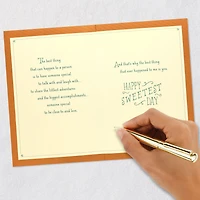 The best thing
that can happen to a person
is to have someone special
to talk with and laugh with,
to share the silliest adventures
and the biggest accomplishments,
someone special
to be close to and love.
And that's why the best thing
that ever happened to me is you.
HAPPY
SWEETEST
DAY